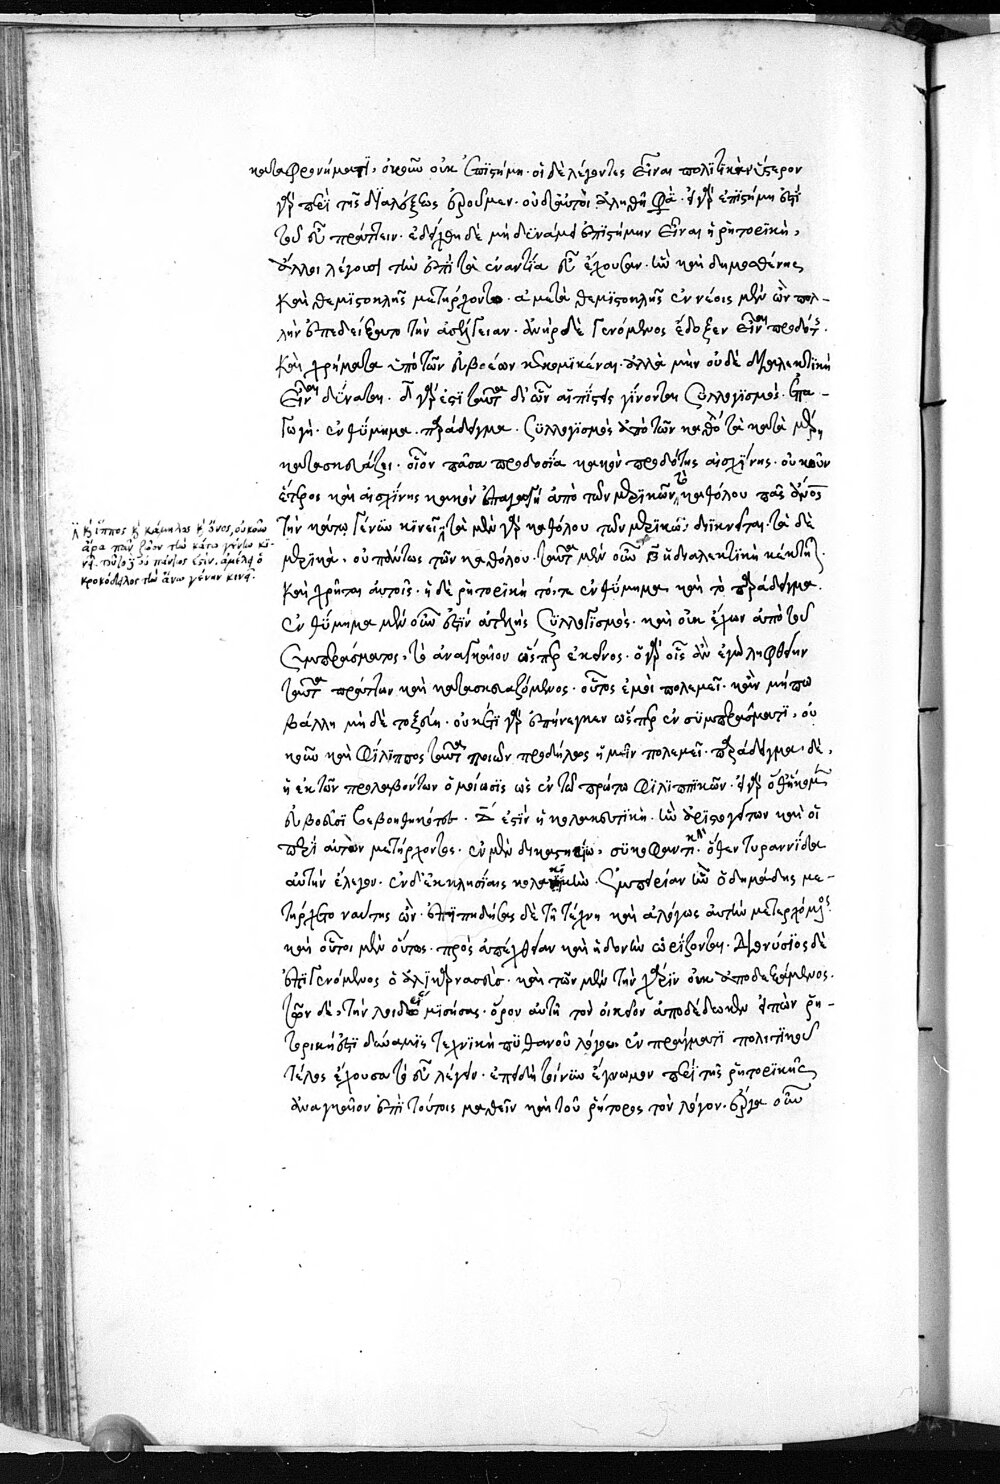 οὐκ ἐπιστήμη· οἱ δὲ λέγοντες εἶναι πολιτικὴν ὕστερον
γὰρ περὶ τῆς διαλέξεως ἐροῦμεν· οὐδ' αὐτοὶ ἀληθῆ φασὶ· ἡ γὰρ ἐπιστήμη ἐπὶ
τοῦ εὖ πράττειν· ἐδείχθη δὲ μὴ δύναμις ἐπιστήμην εἶναι ἡ ῥητορική,
ἄλλοι λέγουσι τὴν ἐπὶ τὰ ἐναντία εὖ ἔχουσαν· ἣν καὶ δημοσθένης
καὶ θεμιστοκλῆς μετήρχοντο· θεμιστοκλῆς ἐν νέοις μὲν ὢν πολ-
λὴν ἐπεδείξατο τὴν ἀσέλγειαν· ἀνὴρ δὲ γενόμενος ἔδοξεν εἶναι προδότης·
καὶ χρήματα ὑπὸ τῶν εὐβοέων κεκομικέναι· ἀλλὰ μὴν οὐδὲ διαλεκτικὴ
εἶναι δύναται· δ γάρ εἰσι ταῦτα δι' ὧν αἱ πίστεις γίνονται συλλογισμός· ἐπα-
γωγή· ἐνθύμημα· παράδειγμα· συλλογισμὸς ἀπὸ τῶν καθόλου τὰ κατὰ μέρη
κατασκευάζει· οἷον πᾶσα προδοσία κακὸν προδότης αἰσχίνης· οὐκοῦν
ἑτέροις καὶ αἰσχίνης κακὸν ἐπαγωγὴ ἀπὸ τῶν μερικῶν τὸ καθόλου πᾶς ἄνθρωπος
τὴν κάτω γένυν κινεῖ τὰ μὲν γὰρ καθόλου τῶν μερικῶν δείκνυται· τὰ δὲ
μερικὰ, οὐ πάντως τῶν καθόλου· ταῦτα μὲν οὖν β ἡ διαλεκτικὴ κέκτηται·
καὶ χρῆται αὐτοῖς· ἡ δὲ ῥητορικὴ τό, τε ἐνθύμημα καὶ τὸ παράδειγμα·
ἐνθύμημα μὲν οὖν ἐστὶν ἀτελὴς συλλογισμός· καὶ οὐκ ἔχων ἀπὸ τοῦ
συμπεράσματος, τὸ ἀναγκαῖον ὥσπερ ἐκεῖνος· ὁ γὰρ οἷς ἂν ἐγὼ ληφθείην
ταῦτα πράττων καὶ κατασκευαζόμενος· οὗτος ἐμοὶ πολεμεῖ· κἂν μήπω
βάλλῃ μὴ δὲ τοξεύῃ· οὐκέτι γὰρ ἐπήνεγκεν ὥσπερ ἐν συμπεράσματι, οὐ
κοῦν καὶ φίλιππος ταῦτα ποιῶν προδήλως ἡμῖν πολεμεῖ· παράδειγμα δὲ,
ἡ ἐκ τῶν προλαβόντων ὁμοίωσις ὡς ἐν τῶ πρώτω φιλιππικῶν· εἰ γὰρ ὅθ' ἥκομεν
εὐβοεῦσι βεβοηθηκότες· ἐστὶν ἡ κολακευτική· ἣν ἀριστογείτων καὶ οἱ
περὶ αὐτὸν μετήρχοντο· ἐν μὲν δικαστηρίω, συκοφαντική· ὅθεν τυραννίδα
αὐτὴν ἔλεγον· ἐν δ' ἐκκλησίαις κολακικὴν· ἐμπειρίαν ἣν ὁ δημάδης με-
τήρχετο ναύτης ὤν· ἐπιπηδήσας δὲ τῆ τέχνη καὶ ἀλόγως αὐτὴν μετερχόμενος·
καὶ οὗτοι μὲν οὕτως· πρὸς ἀπέχθειαν καὶ ἡδονὴν ὡρίζοντο· διονύσιος δὲ
ἐπιγενόμενος ὁ ἁλικαρνασσεύς· καὶ τῶν μὲν τὴν χάριν οὐκ ἀποδεξάμενος·
τῶν δὲ, τὴν λοιδορίαν μισήσας· ὅρον αὐτῆ τὸν οἰκεῖον ἀποδέδωκεν εἰπὼν ῥη-
τορική ἐστι δύναμις τεχνικὴ πιθανοῦ λόγου ἐν πράγματι πολιτικῶ
τέλος ἔχουσα τὸ εὖ λέγειν· ἐπειδὴ τοίνυν ἔγνωμεν περὶ τῆς ῥητορικῆς
ἀναγκαῖον ἐπὶ τούτοις μαθεῖν καὶ τοῦ ῥήτορος τὸν λόγον· ἔργα οὖν
καὶ ἵππος καὶ κάμηλος καὶ ὄνος, οὐκοῦν
ἄρα πᾶν ζῶον τὴν κάτω γένυν κι-
νεῖ· τοῦτο οὐ πάντως ἐστὶν· ἀμέλει ὁ
κροκόδειλος τὴν ἄνω γένυν κινεῖ·